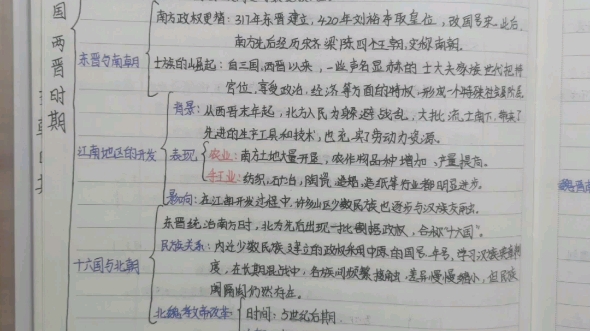 国两晋时期
东晋与南朝
南方政权更替：317年东晋建立，420年刘裕夺取皇位，改国号宋。此后，
南方先后经历宋齐梁陈四个王朝，史称南朝。
士族的崛起：自三国、西晋以来，一些声名显赫的士大夫家族世代把持
官位，享受政治、经济等方面的特权，形成一个特殊社会阶层
江南地区的开发
背景：从西晋末年起，北方人民为躲避战乱，大批流亡南下，带来了
先进的生产工具和技术，也充实了劳动力资源。
表现
农业：南方土地大量开垦，农作物品种增加，产量提高。
手工业：纺织、冶、陶瓷、造船、造纸等行业都明显进步。
影响：在江南开发过程中，许多山区少数民族也逐步与汉族交融。
十六国与北朝
东晋统治南方时，北方先后出现一批割据政权，合称“十六国”。
民族关系：内迁少数民族建立的政权采用中原的国号、年号，学习汉族典章制
度，在长期混战中，各族间频繁接触，差异慢慢缩小，但民族
间隔阂仍然存在。
北魏孝文帝改革
时间：5世纪后期